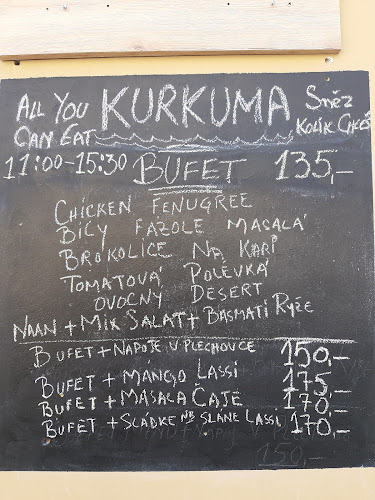 ALL YOU CAN EAT KURKUMA SNĚZ KOLIK CHCEŠ
11:00-15:30 BUFET 135,-
CHICKEN FENUGREE
BÍLÝ FAZOLE MASALÁ
BROKOLICE NA KARI
TOMATOVÁ POLÉVKÁ
OVOCNÝ DESERT
NAAN + MIX SALAT + BASMATI RÝŽE
BUFET + NAPOJE V PLECHOVCE 150,-
BUFET + MANGO LASSI 175,-
BUFET + MASALA ČAJE 170,-
BUFET + SLÁDKE NB SLANE LASSI 170,-
150,-